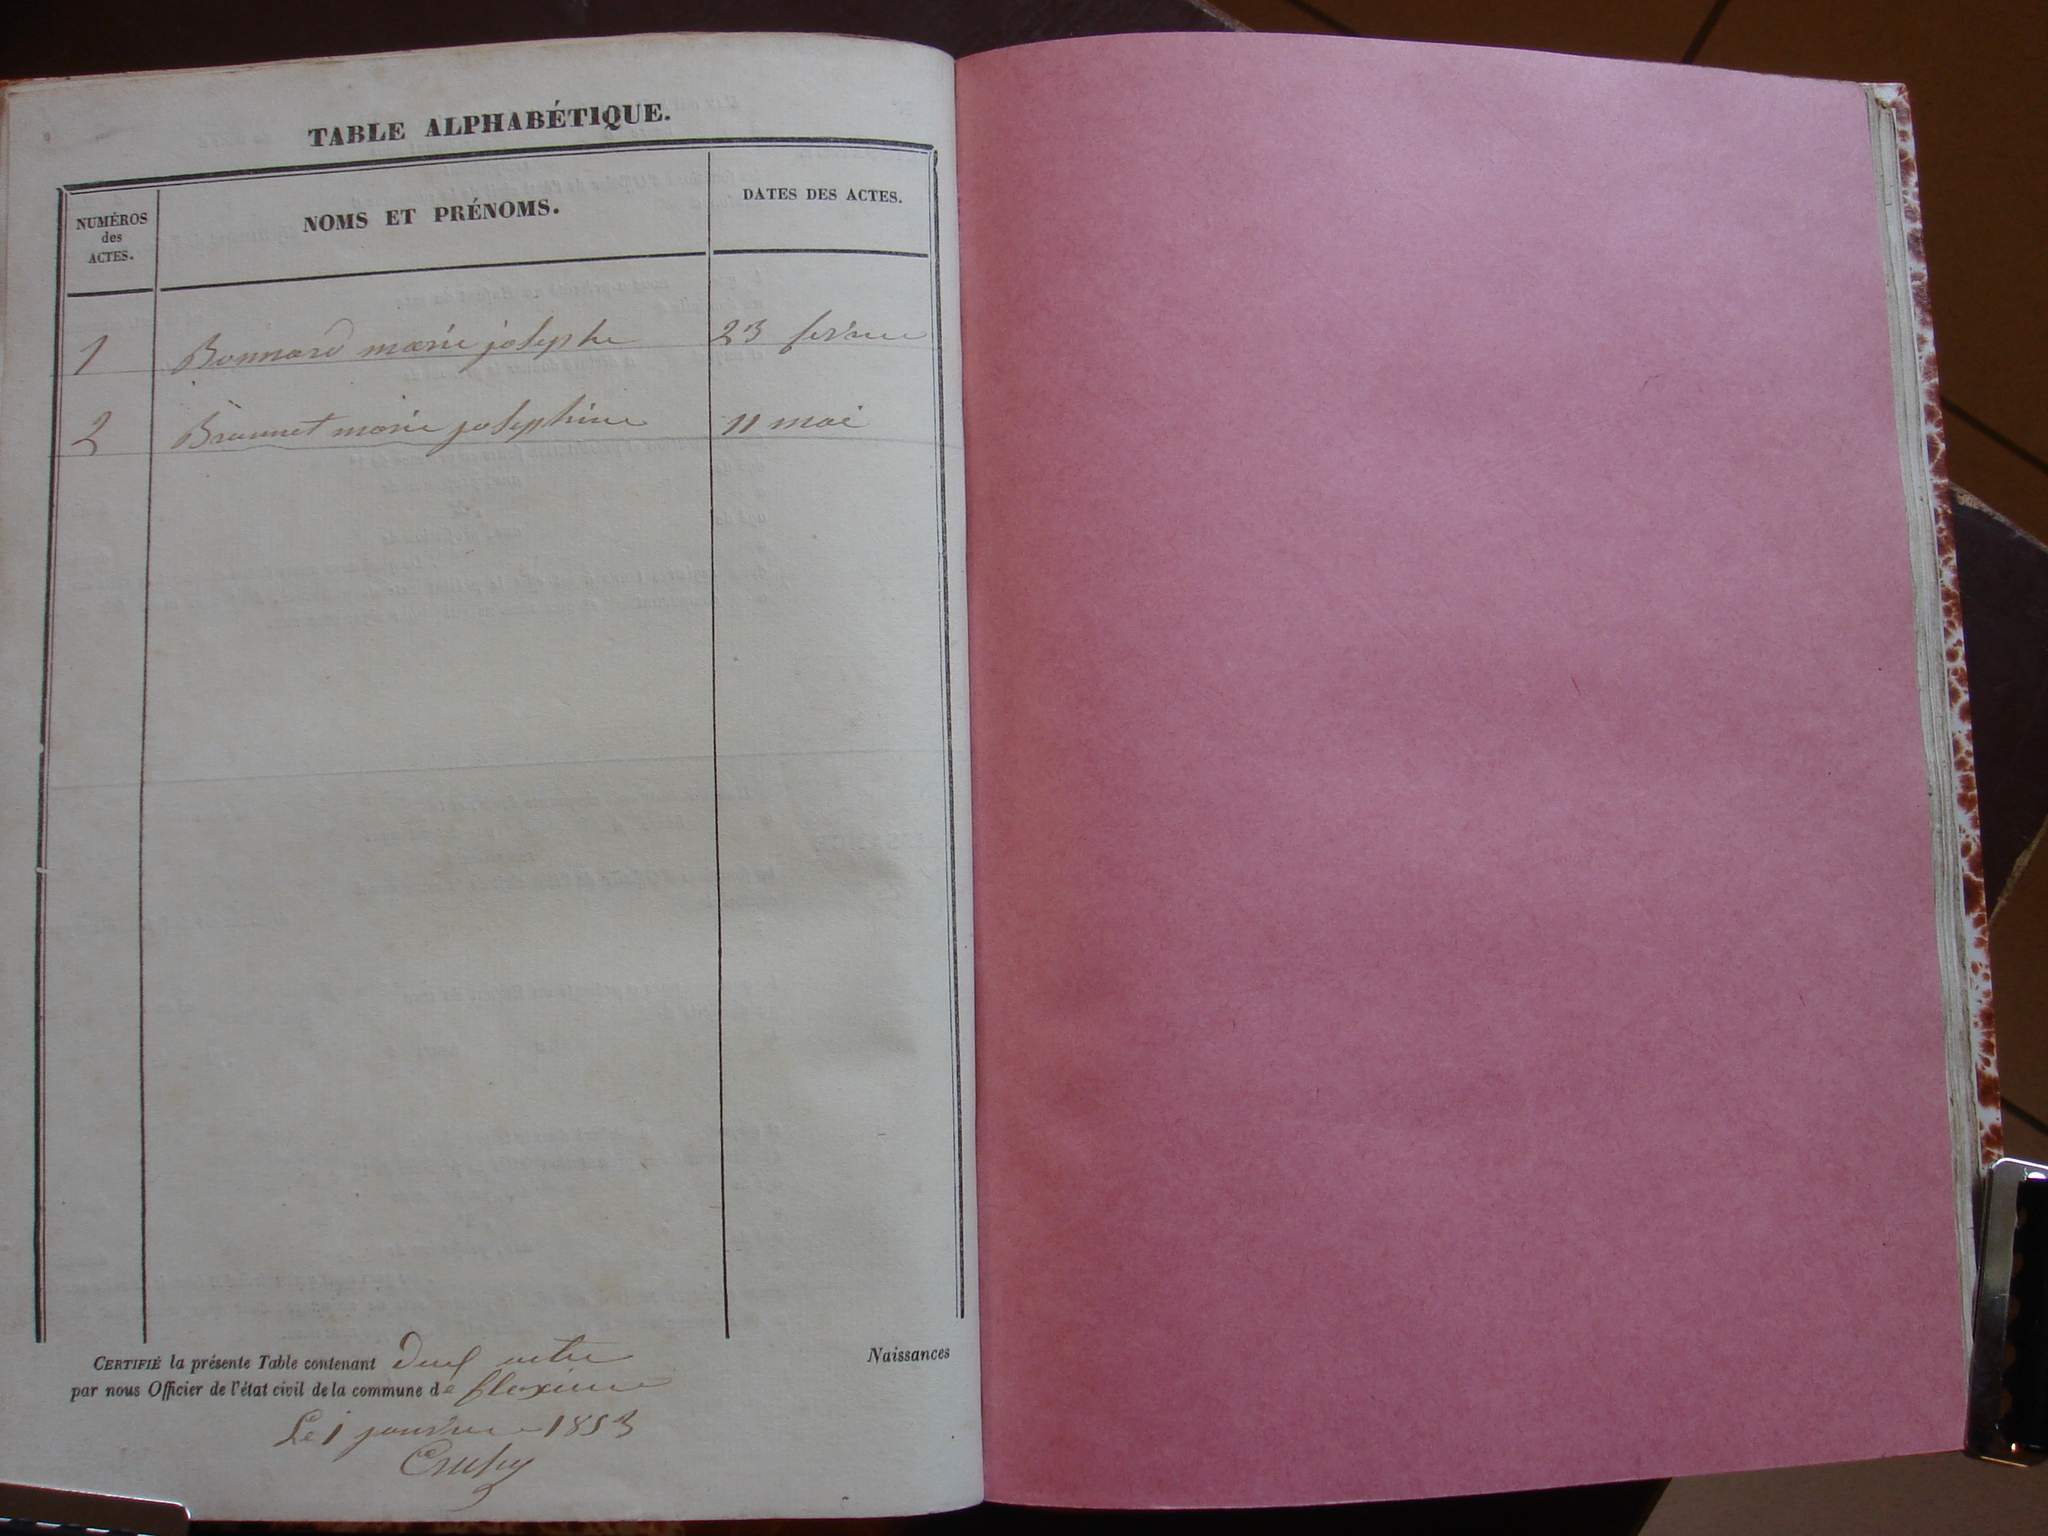 TABLE ALPHABÉTIQUE.
NUMÉROS
des
ACTES.
NOMS ET PRÉNOMS.
DATES DES ACTES.
1 Bonnard marie josephe 23 fevrier
2 Brunnet marie josephine 11 mai
CERTIFIÉ la présente Table contenant Deux actes Naissances
par nous Officier de l'état civil de la commune de
Le 1 janvier 1853